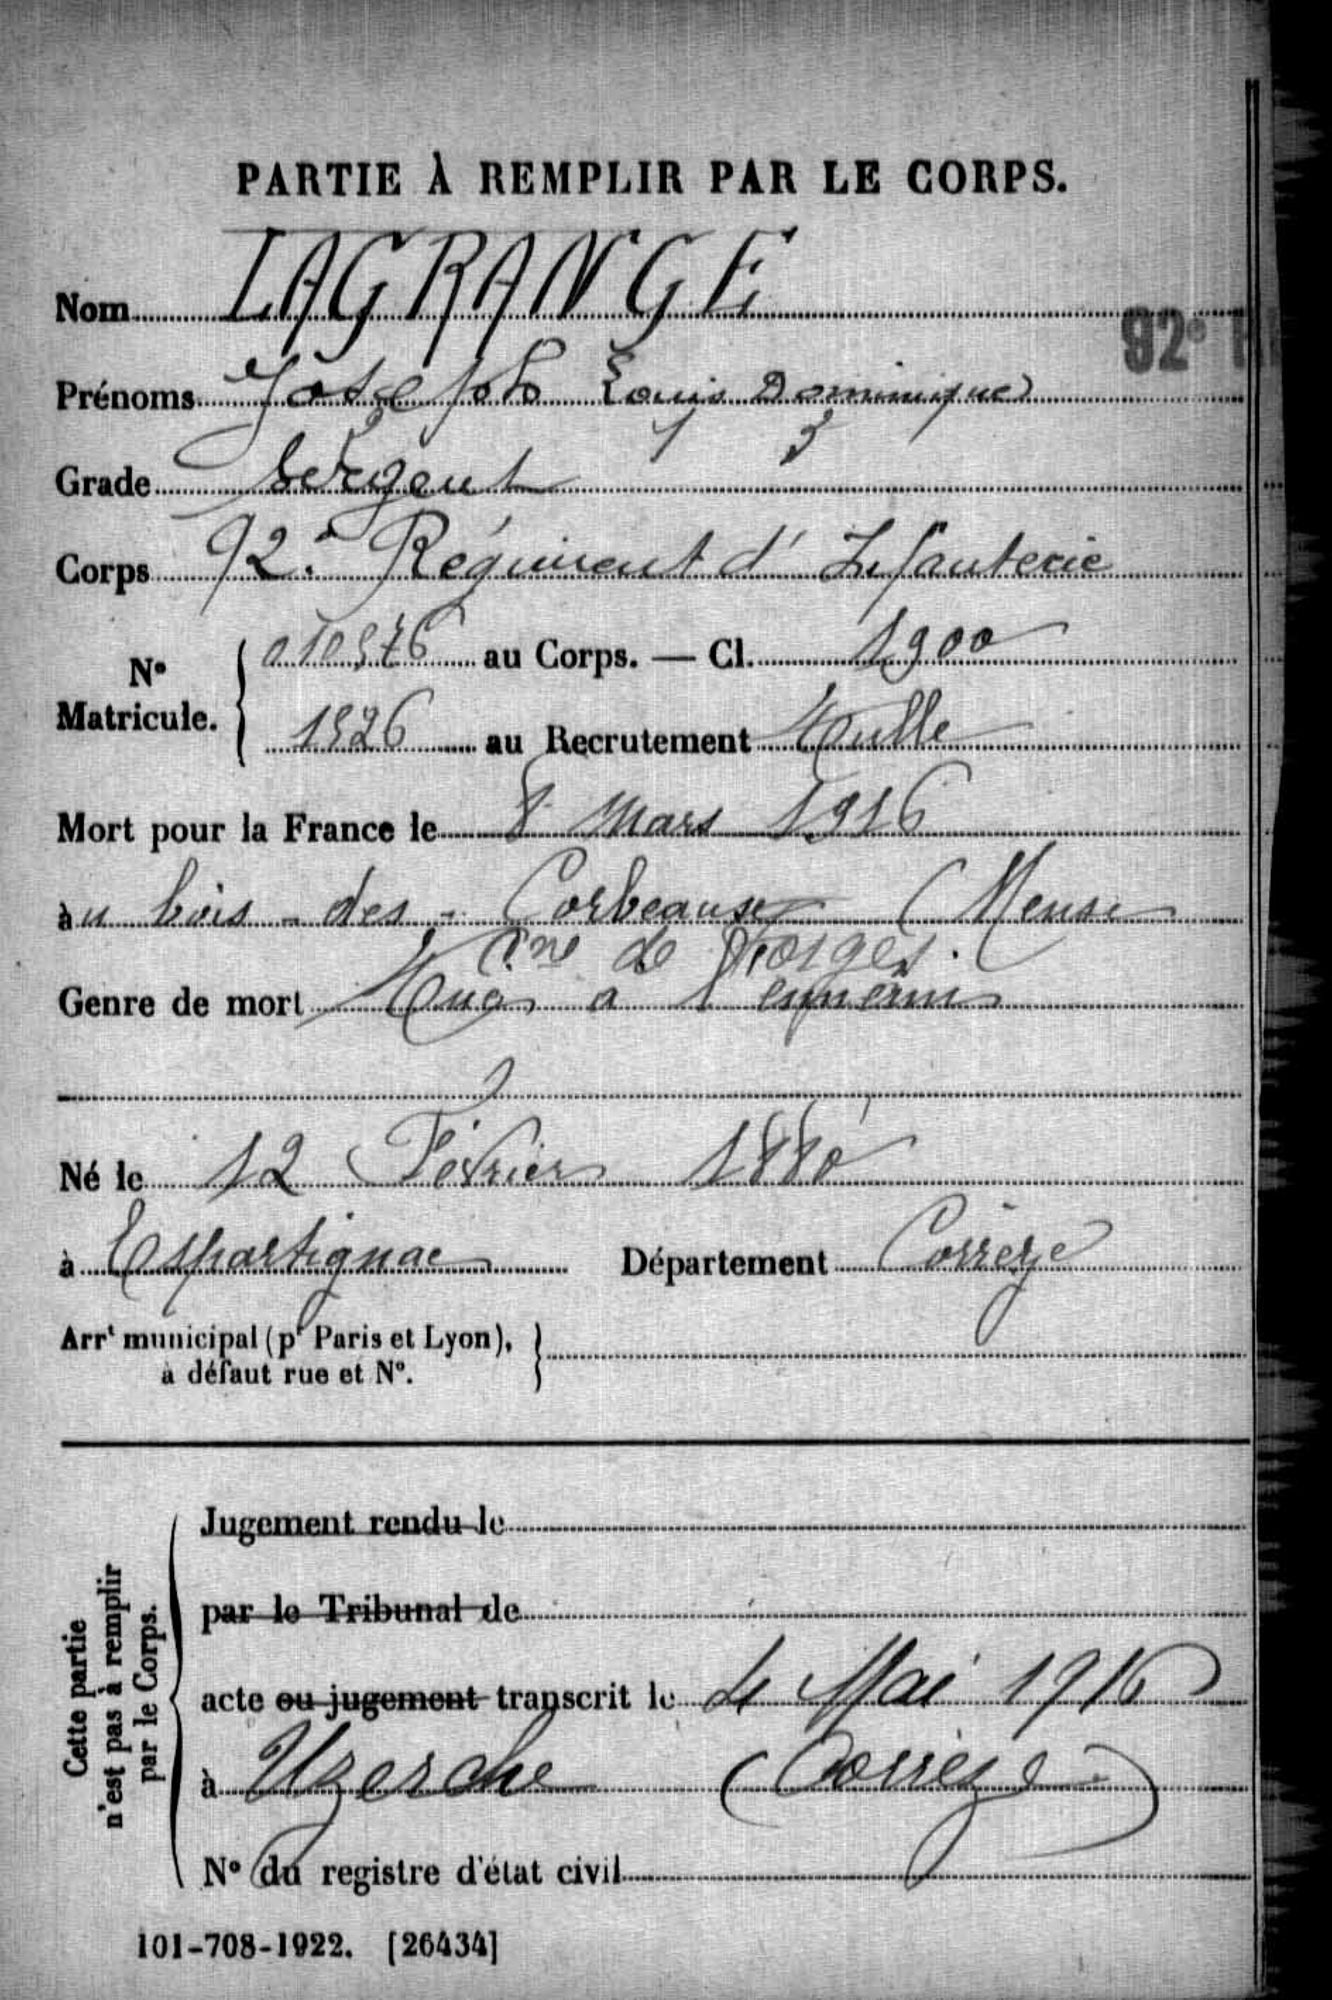 PARTIE À REMPLIR PAR LE CORPS.
Nom LAGRANGE
92e
Prénoms Joseph Louis Dominique
1 3
Grade Sergent
Corps 92e Régiment d'Infanterie
No Matricule. { 010976 au Corps. — Cl. 1900
1526 au Recrutement Tulle
Mort pour la France le 8 Mars 1916
au bois - des - Corbeaux (Meuse
Cne de Forges.
Genre de mort Tué à l'ennemi
Né le 12 Février 1880
à Espartignac Département Corrèze
Arrt municipal (pr Paris et Lyon), }
à défaut rue et No.
Cette partie
n'est pas à remplir
par le Corps.
Jugement rendu le
par le Tribunal de
acte ou jugement transcrit le 4 Mai 1916
à Uzerche (Corrèze)
No du registre d'état civil
101-708-1922. [26434]